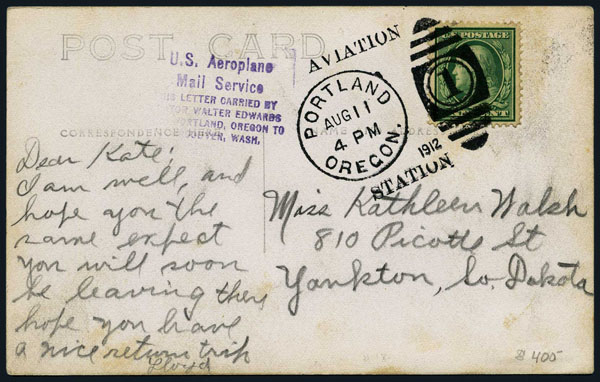 POST CARD
U.S. Aeroplane
Mail Service
IS LETTER CARRIED BY
TOR WALTER EDWARDS
PORTLAND, OREGON TO
WASH.
CORRESPONDENCE
NAME
ADDRESS
AVIATION
PORTLAND
AUG 11
4 PM
OREGON.
1912
STATION
1
U.S. POSTAGE
CENT
Dear Kate;
I am well, and
hope you the
same expect
you will soon
be leaving there
hope you have
a nice return trip
Lloyd
Miss Kathleen Walsh
810 Picotte St
Yankton, So. Dakota
$400